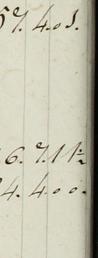 57. 4. 0 1.
6. 7. 1 1½
4. 4. 0 0.